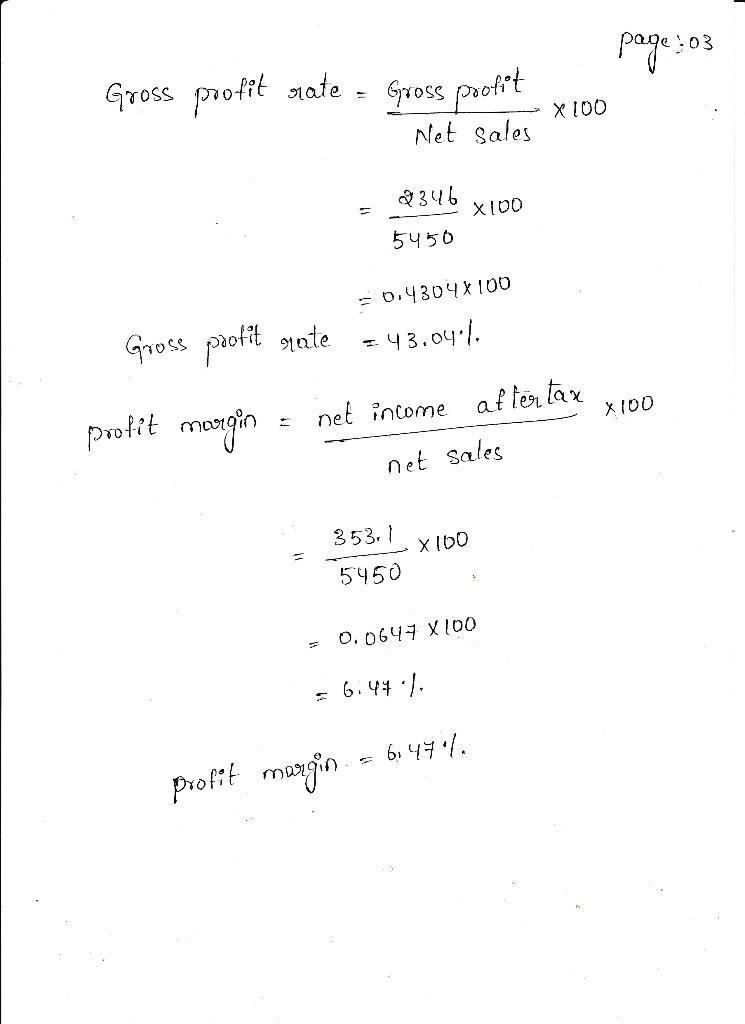 page: 03
Gross profit rate = Gross profit
Net sales × 100
= 2346 × 100
5450
= 0.4304 × 100
Gross profit rate = 43.04%.
profit margin = net income after tax × 100
net sales
= 353.1 × 100
5450
= 0.0647 × 100
= 6.47%.
profit margin = 6.47%.